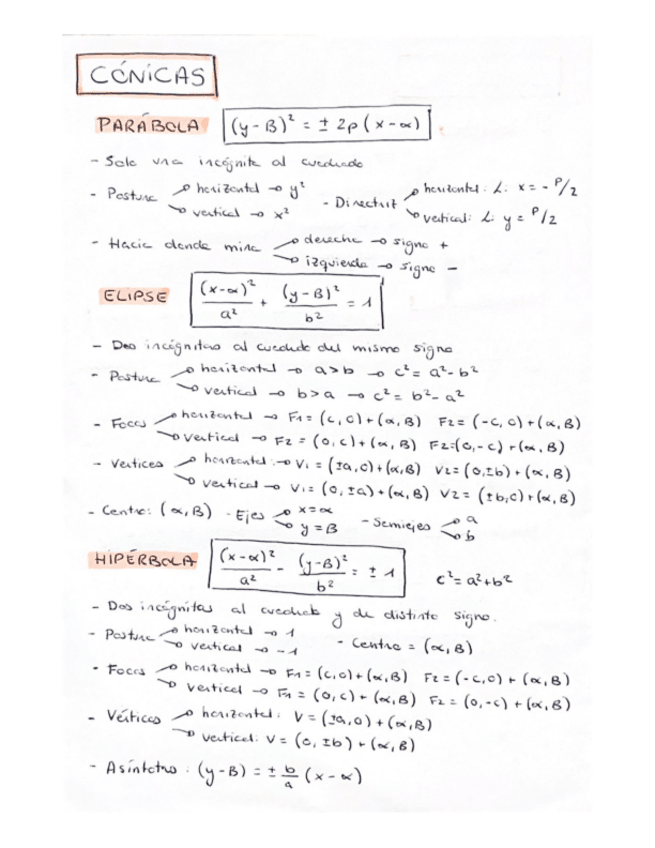 CÓNICAS
PARÁBOLA (y-B)² = ± 2p (x-α)
- Solo una incógnita al cuadrado
- Postura horizontal → y² - Directriz horizontal: L: x = - P/2
vertical → x² vertical: L: y = P/2
- Hacia donde mira derecha → signo +
izquierda → signo -
ELIPSE (x-α)²/a² + (y-B)²/b² = 1
- Dos incógnitas al cuadrado del mismo signo
- Postura horizontal → a>b → c² = a²-b²
vertical → b>a → c² = b²-a²
- Focos horizontal → F1 = (c,0)+(α,B) F2 = (-c,0)+(α,B)
vertical → F2 = (0,c)+(α,B) F2=(0,-c)+(α,B)
- Vertices horizontal: → V1 = (±a,0)+(α,B) V2 = (0,±b)+(α,B)
vertical → V1 = (0,±a)+(α,B) V2 = (±b,0)+(α,B)
- Centro: (α,B) - Ejes x=α - Semiejes a
y=B b
HIPÉRBOLA (x-α)²/a² - (y-B)²/b² = ± 1 c²=a²+b²
- Dos incógnitas al cuadrado y de distinto signo.
- Postura horizontal → 1 - Centro = (α,B)
vertical → -1
- Focos horizontal → F1 = (c,0)+(α,B) F2 = (-c,0)+(α,B)
vertical → F1 = (0,c)+(α,B) F2 = (0,-c)+(α,B)
- Vértices horizontal: V = (±a,0)+(α,B)
vertical: V = (0,±b)+(α,B)
- Asíntotas : (y-B) = ± b/a (x-α)